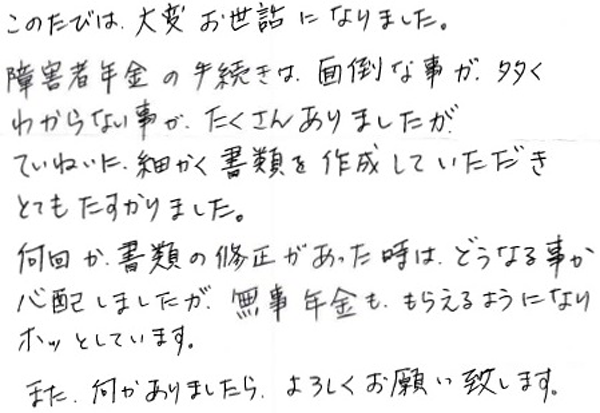 このたびは、大変 お世話 に なりました。
障害者年金 の 手続きは、面倒な事が、多く
わからない事が、たくさんありましたが、
ていねいに、細かく 書類を 作成していただき
とても たすかりました。
何回か、書類の修正があった時は、どうなる事か
心配しましたが、無事 年金も、もらえるようになり
ホッとしています。
また、何かありましたら、よろしくお願い致します。